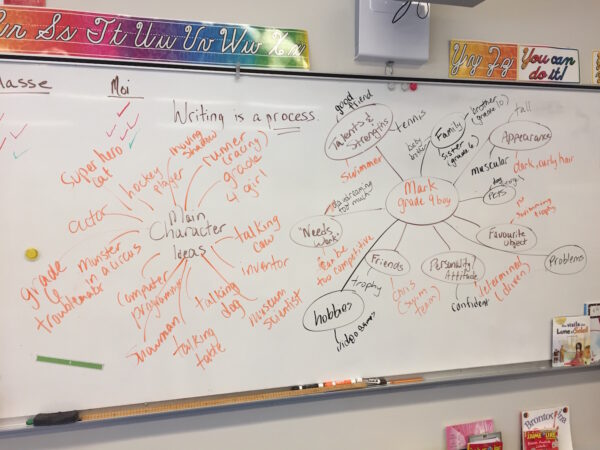 Ss Tt Uu Vv Ww Xx
Yy Zz
You can
do it!
Masse
Moi
Writing is a process.
superhero
cat
hockey
player
moving
shadow
runner
(racing)
grade
4 girl
actor
Main
Character
Ideas
talking
cow
inventor
grade
6
troublemaker
monster
in a circus
computer
programmer
snowman
talking
table
talking
dog
museum
scientist
good
friend
Talents &
Strengths
tennis
swimmer
Family
brother
(grade 10)
sister
(grade 6)
baby
brother
tall
Appearance
muscular
dark, curly hair
Mark
grade 9 boy
dog
Pets
daydreaming
too much
"Needs
Work"
can be
too competitive
swimming
trophy
Favourite
Object
Problems
Friends
trophy
Chris (swim
team)
Personality/
Attitude
confident
determined
(driven)
hobbies
video games